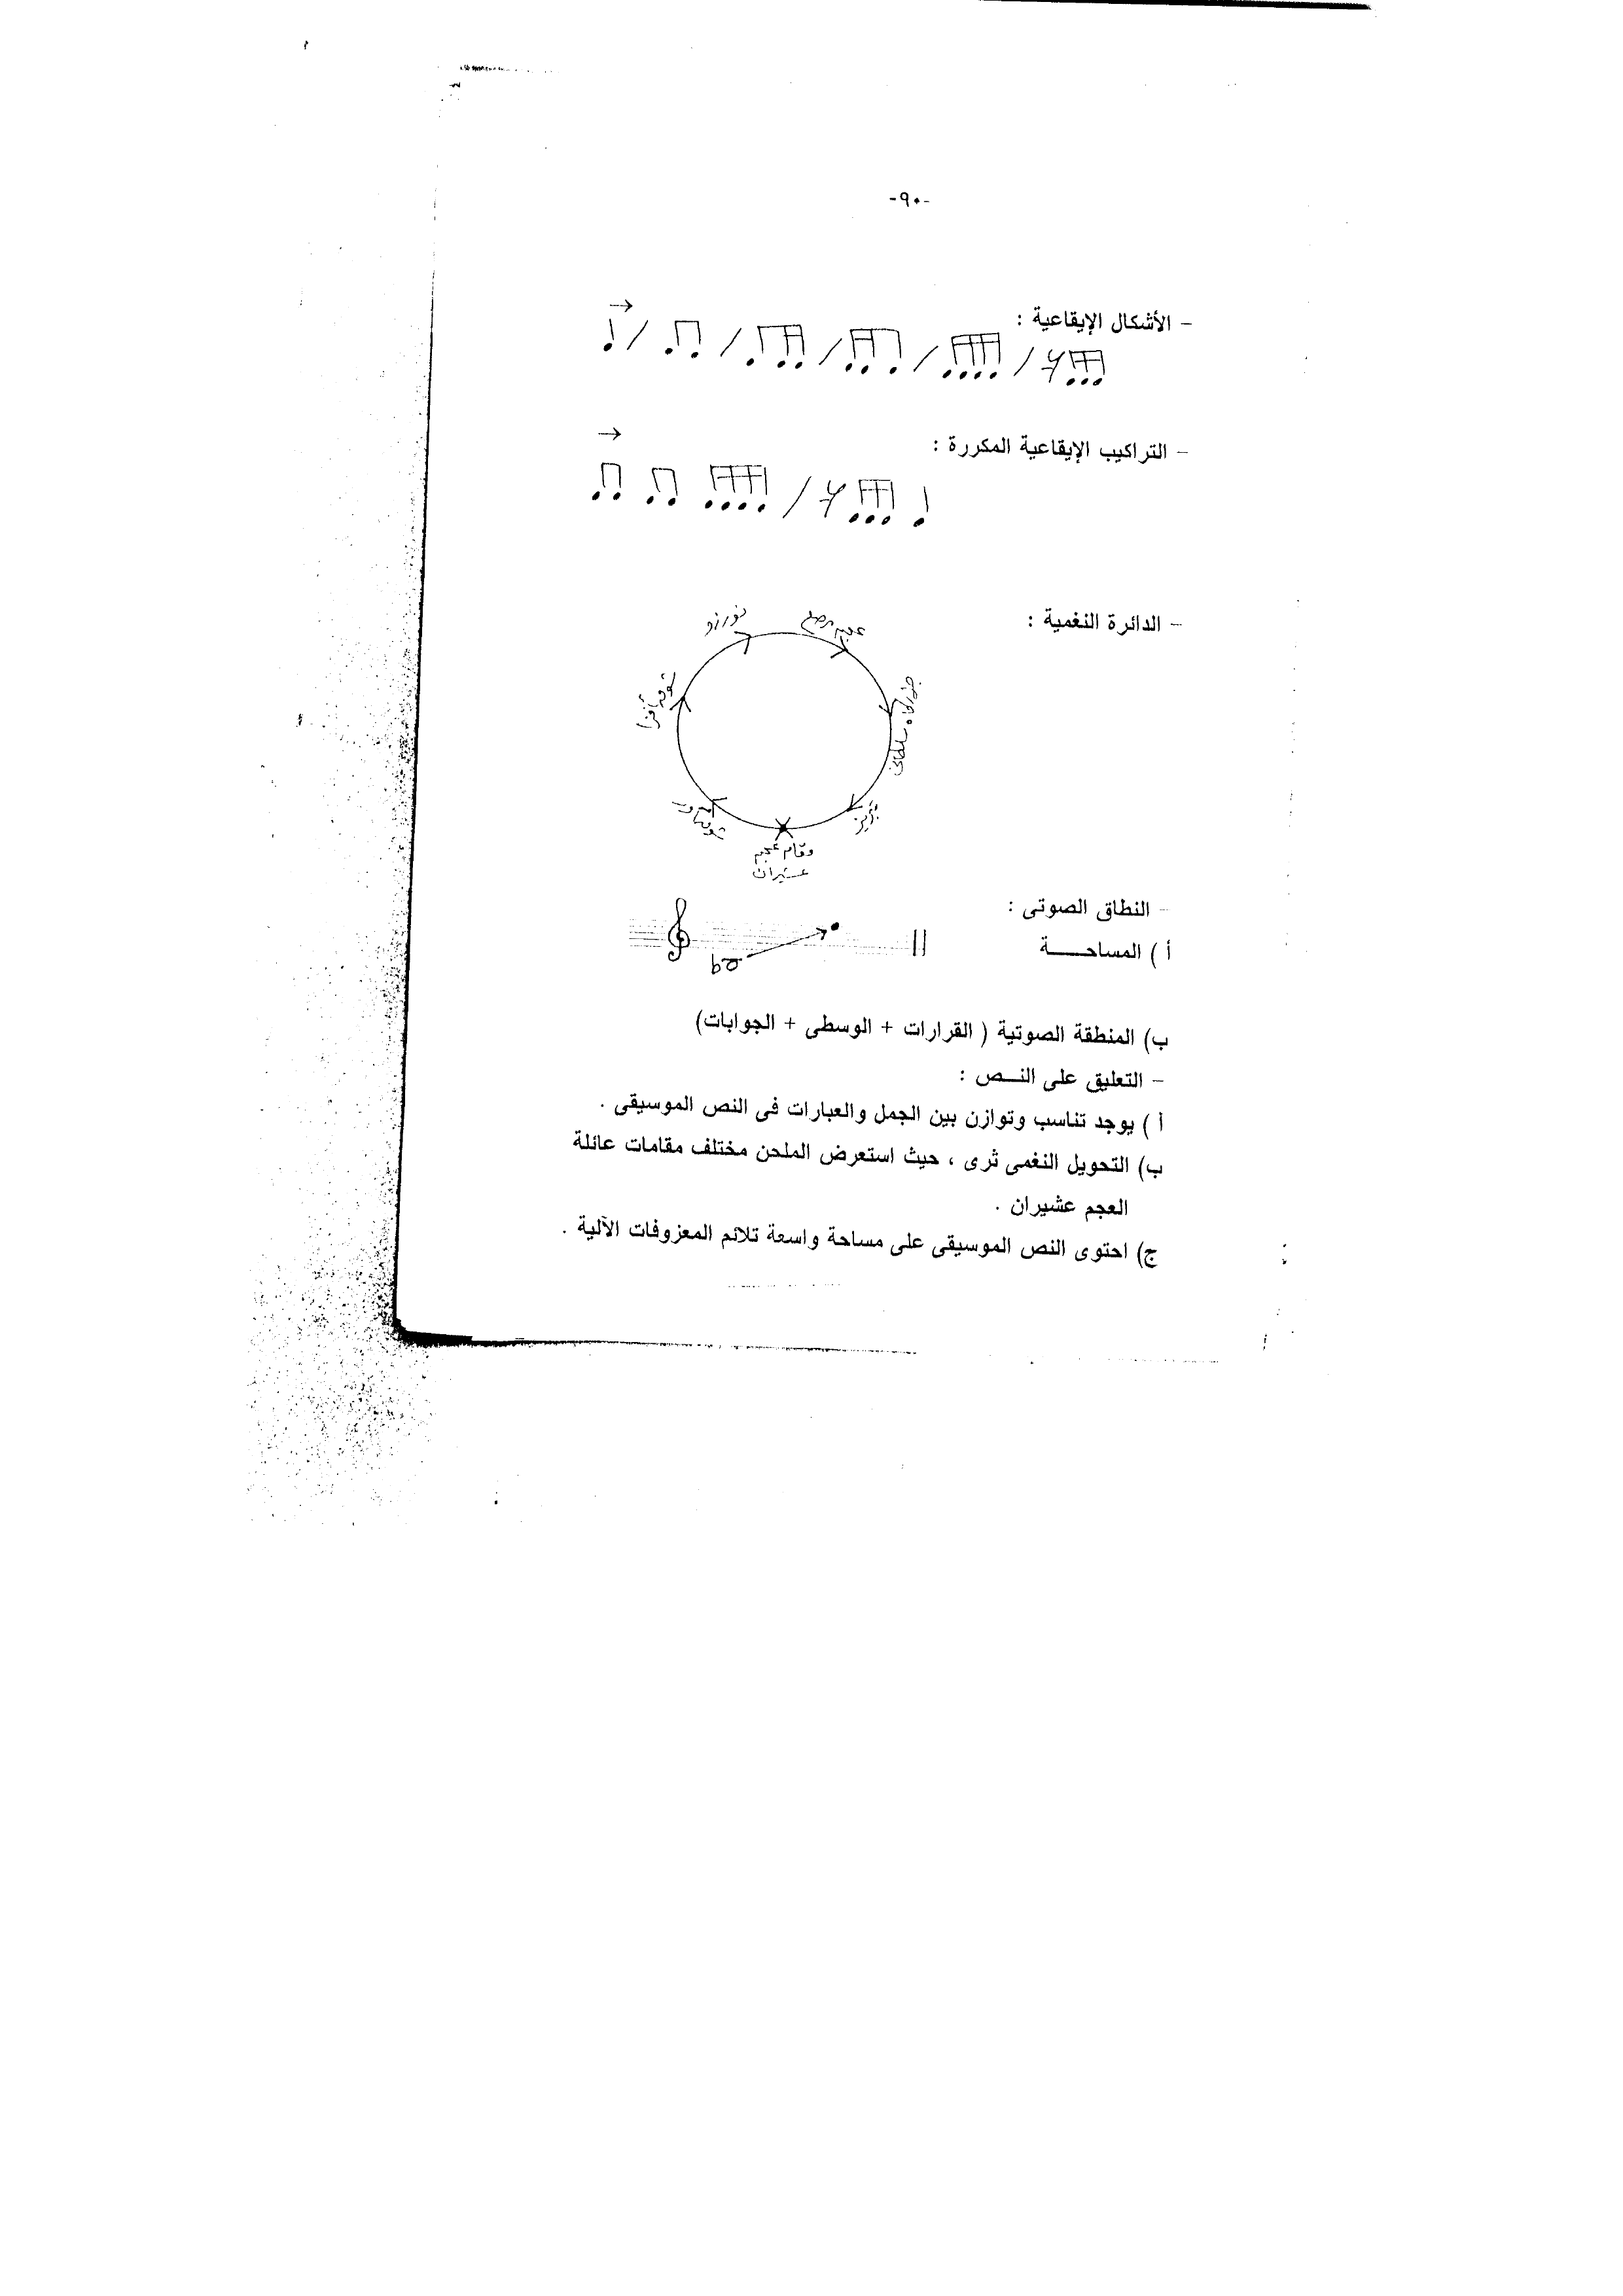 -٩٠-
- الأشكال الإيقاعية :
- التراكيب الإيقاعية المكررة :
- الدائرة النغمية :
عجم مرصع
جهاركاه سلطانى
مقام عجم
عشيران
شوق أفزا
- النطاق الصوتى :
أ ) المساحـــــة
ب) المنطقة الصوتية ( القرارات + الوسطى + الجوابات)
- التعليق على النـــص :
أ ) يوجد تناسب وتوازن بين الجمل والعبارات فى النص الموسيقى .
ب) التحويل النغمى ثرى ، حيث استعرض الملحن مختلف مقامات عائلة
العجم عشيران .
ج) احتوى النص الموسيقى على مساحة واسعة تلائم المعزوفات الآلية .